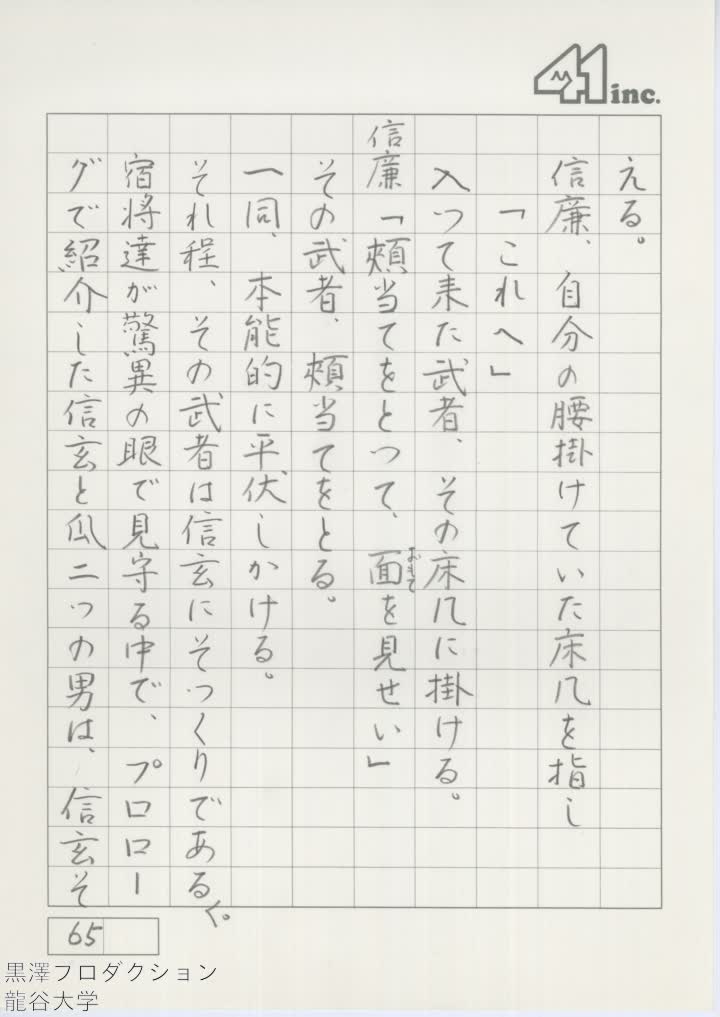 41 inc.
える。
信廉、自分の腰掛けていた床几を指し
「これへ」
入って来た武者、その床几に掛ける。
信廉「頬当てをとって、面を見せい」
おもて
その武者、頬当てをとる。
一同、本能的に平伏しかける。
それ程、その武者は信玄にそっくりである。
宿将達が驚異の眼で見守る中で、プロロー
グで紹介した信玄と瓜二つの男は、信玄そ
65
黒澤プロダクション
龍谷大学